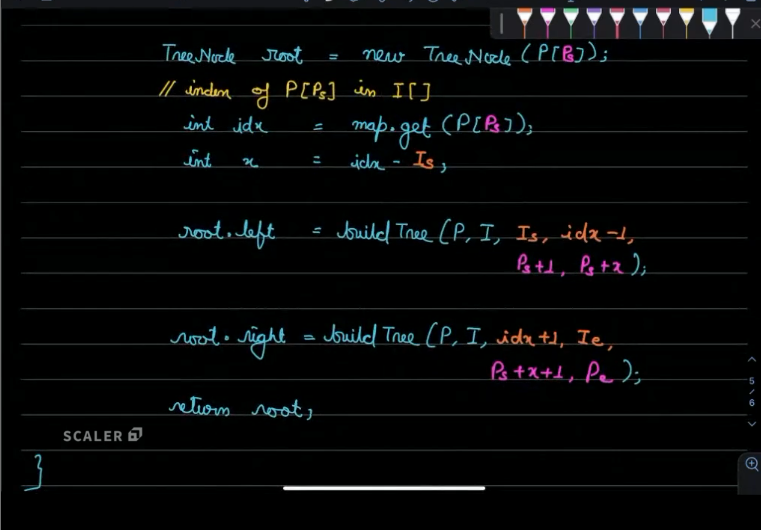 TreeNode root = new TreeNode (P[Ps]);
// index of P[Ps] in I[]
int idx = map.get (P[Ps]);
int x = idx - Is;
root.left = buildTree (P, I, Is, idx-1,
Ps+1, Ps+x);
root.right = buildTree (P, I, idx+1, Ie,
Ps+x+1, Pe);
return root;
5
/
6
SCALER
}